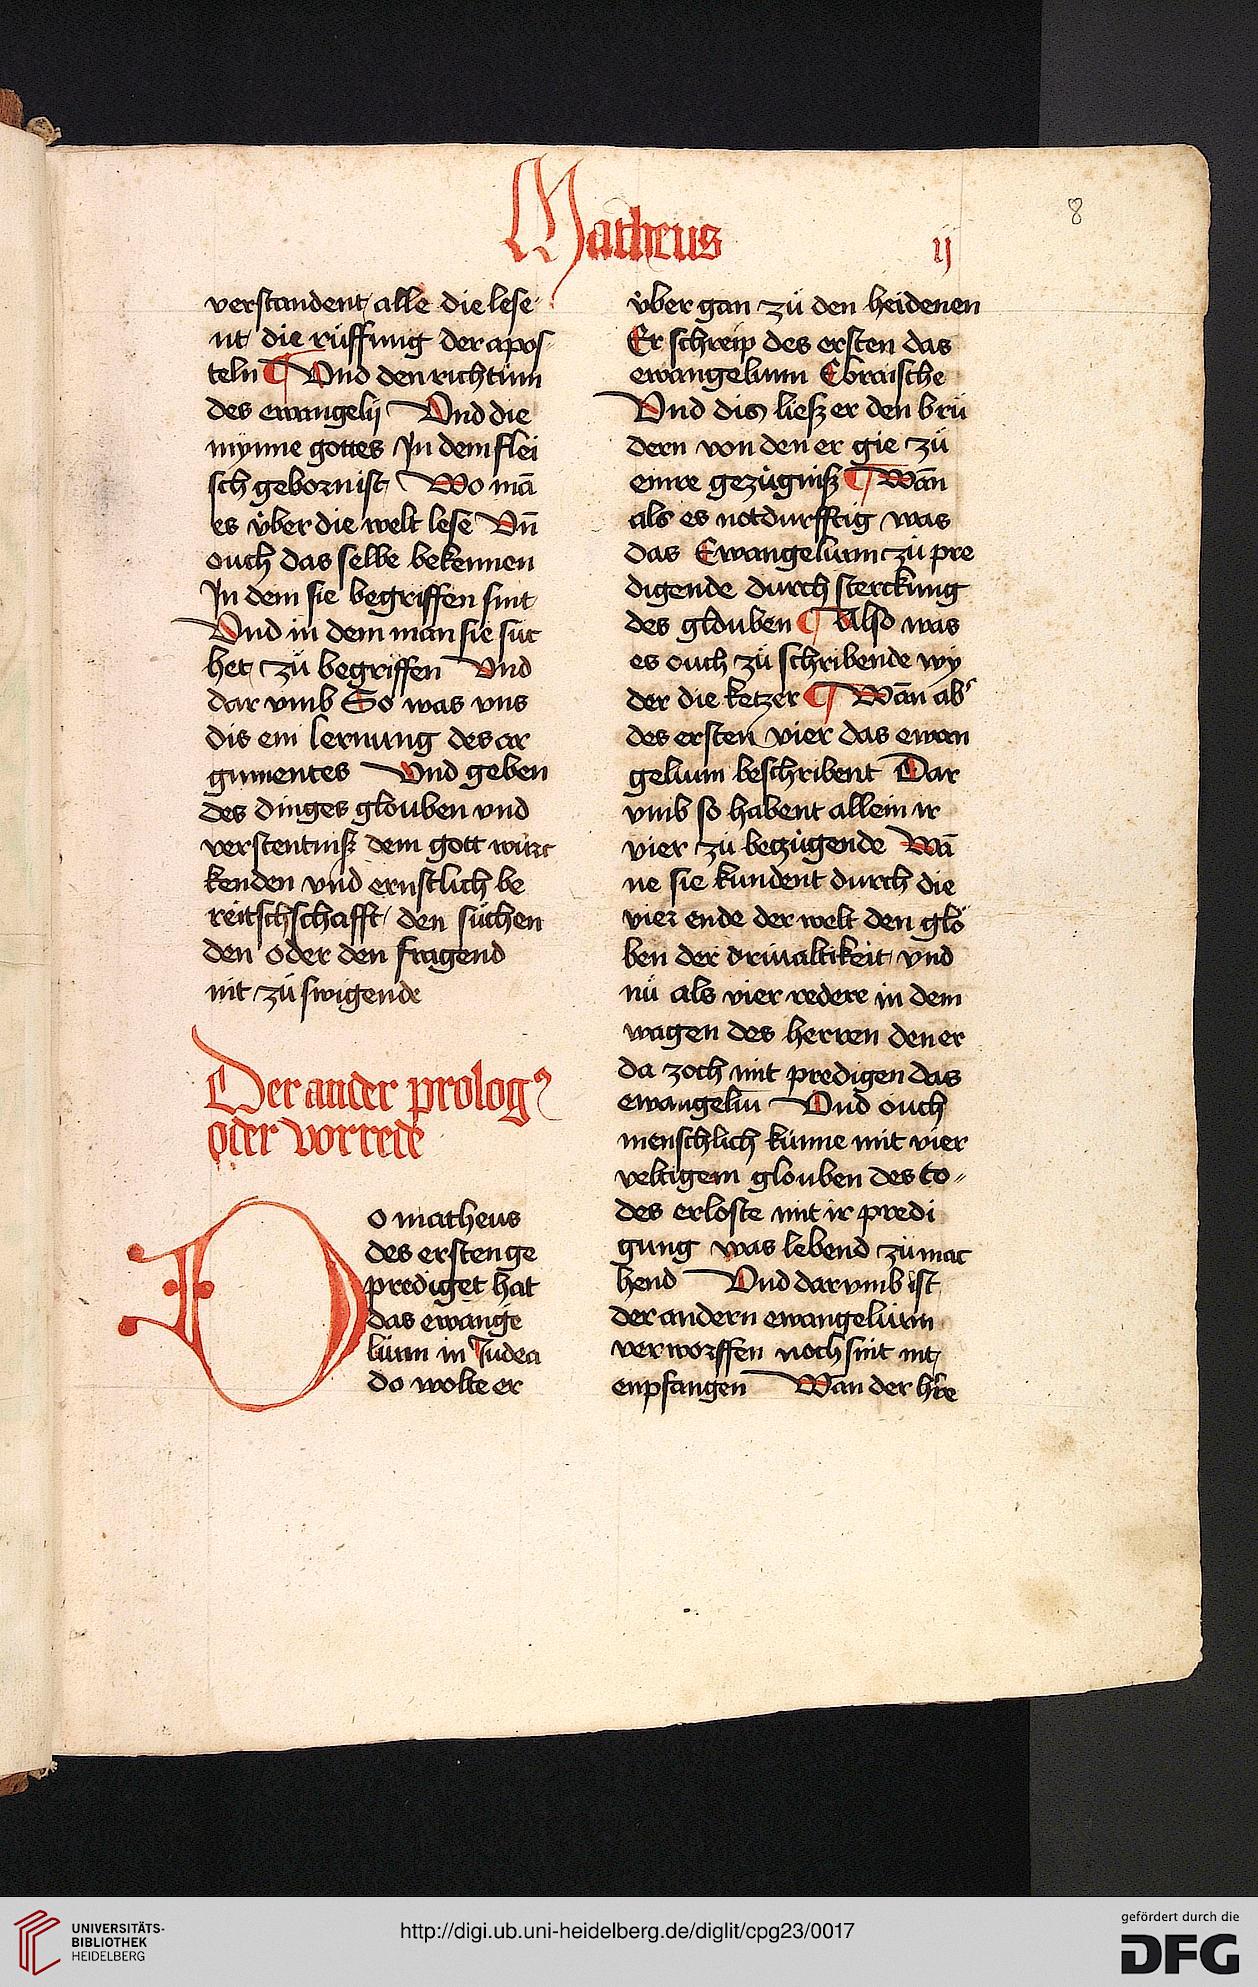 Matheus
ij
8
verstandent alle die lese
nt die rüffung der apos
teln Vnd den richtum
des ewangelij Vnd die
mynne gottes Jn dem flei
sch geborn ist Wo mā
es v̈ber die welt lese Vn̄
ouch das selbe bekennen
Jn dem sie begriffen sint
Vnd in dem man sie süc
het zü begriffen Vnd
dar vmb So was vns
dis ein lernung des ar
gumentes Vnd geben
des dinges glouben vnd
verstentniß dem gott würc
kenden vnd ernstlich be
reitschschafft den süchen
den oder den fragend
nit zü swigende
Der ander prologꝰ
oder vorrede
Do matheus
des ersten ge
prediget hat
das ewange
lium in Judea
do wolte er
v̈ber gan zü den heidenen
Er schreip des ersten das
ewangelium Ebraische
Vnd dis ließ er den brü
dern von den er gie zü
einre gezügniß Wan
als es notdurfftig was
das Ewangelium zü pre
digende durch sterckung
des glouben Also was
es ouch zü schribende wy
der die ketzer Wan ab
des ersten vier das ewan
gelium beschribent Dar
vmb so habent allein ir
vier zü bezügende Wā
ne sie kundent durch die
vier ende der welt den glo
ben der driualtikeit vnd
nü als vier redere in dem
wagen des herren den er
da zoch mit predigen das
ewangeliū Vnd ouch
menschlich künne mit vier
veltigem glouben des to
des erloste mit ir predi
gung was lebend zü mac
hend Vnd dar vmb ist
der andern ewangelium
verworffen noch sint nit
enpfangen Wan der hre
UNIVERSITÄTS-
BIBLIOTHEK
HEIDELBERG
http://digi.ub.uni-heidelberg.de/diglit/cpg23/0017
gefördert durch die
DFG